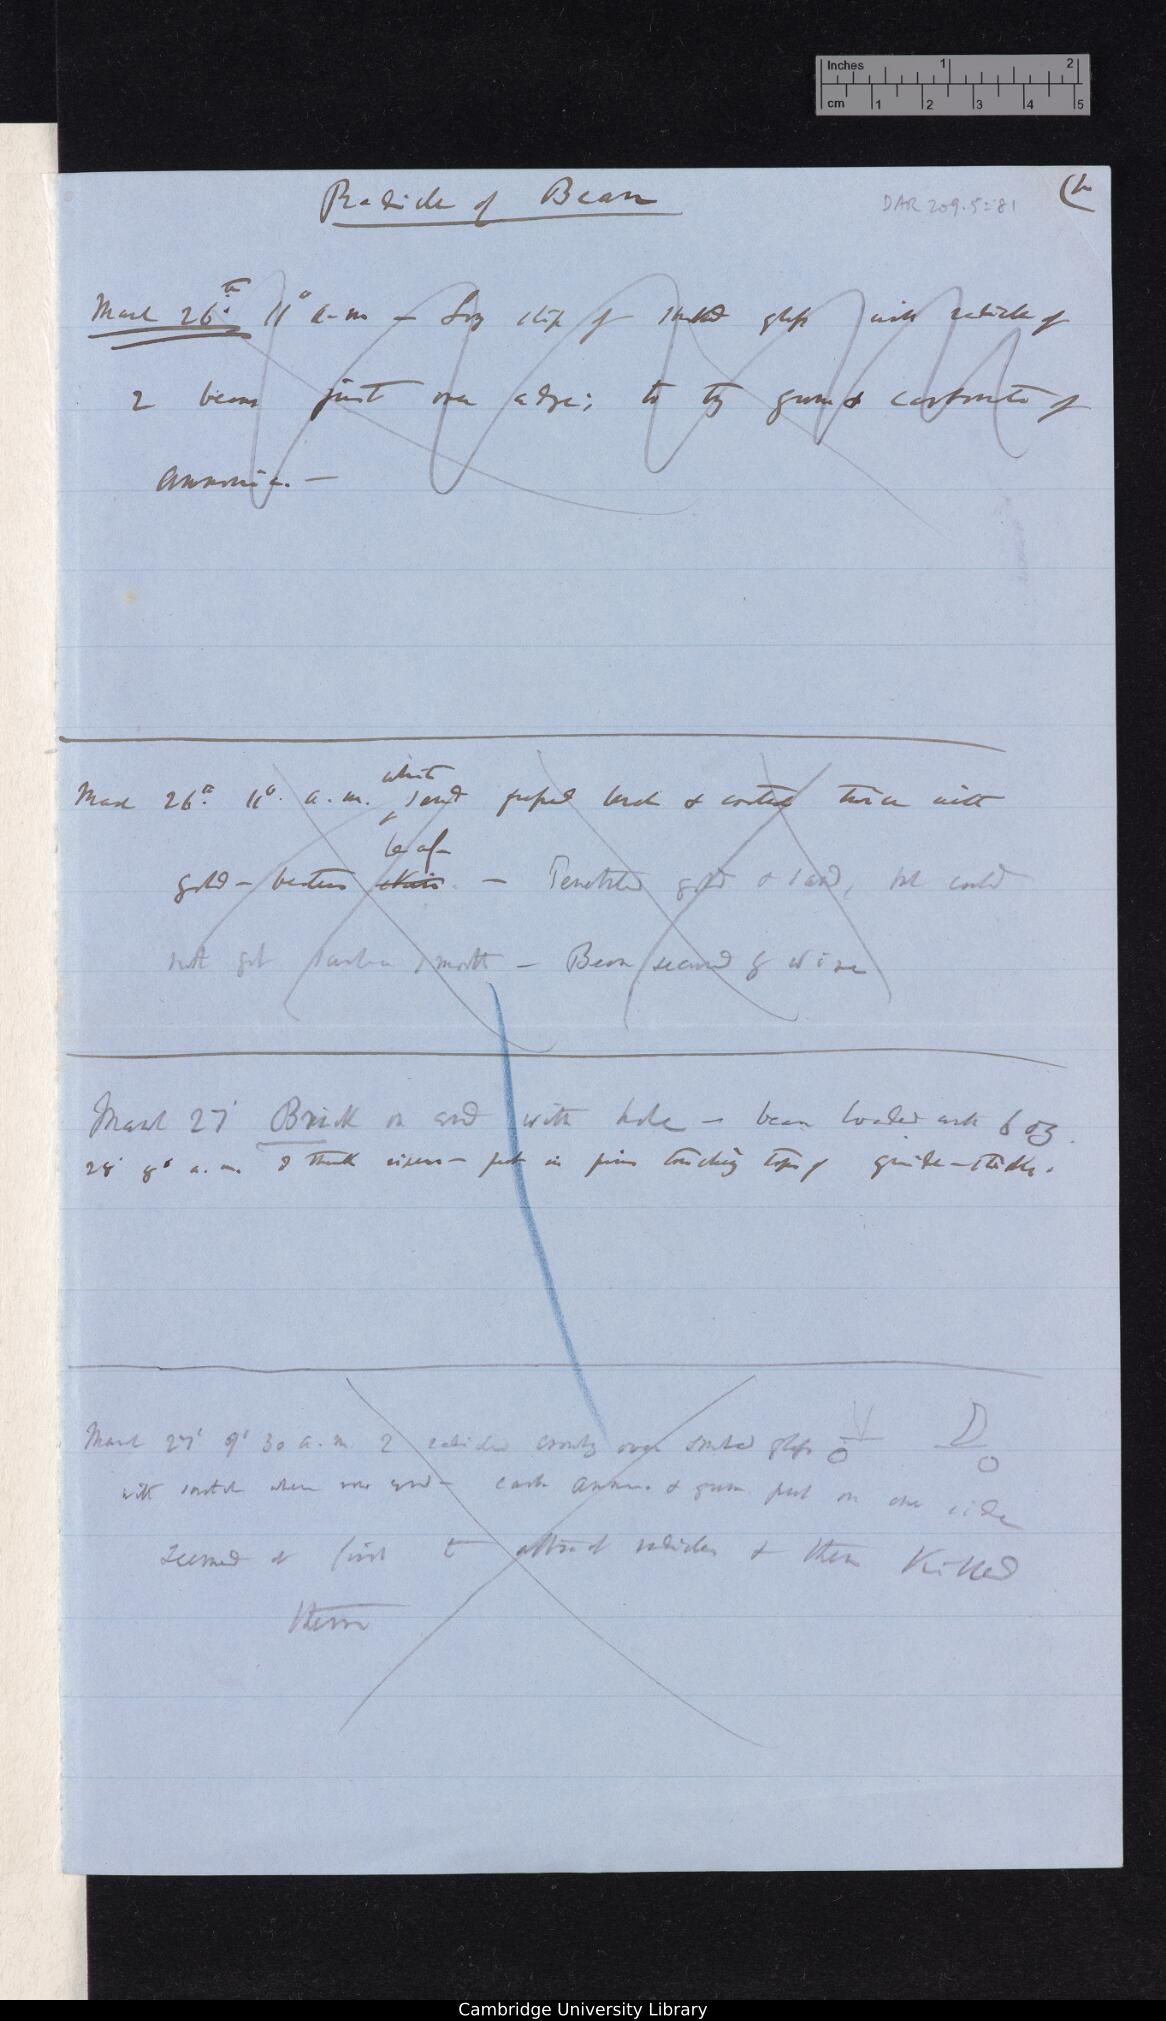 Inches 1 2
cm 1 2 3 4 5
Radicle of Bean
DAR 209.5:81
March 26th 11° a.m — slip of smoked glass with radicle of
2 beans just over edge; to try gum & carbonate of
Ammonia. —
white
March 26th 11°. a. m. sand & coated twice with
leaf
gold-beaters skin. — Penetrated gold & sand, but could
not get surface smooth — Bean secured by wire
March 27' Brick on end with hole — bean loaded with 6 oz.
28' 8° a. m. I think risen — put in pins touching tops of guide-sticks.
March 27' 9° 30 a. m 2 radicles over smoked glass
with when — carb ammon. & gum put on one side
seemed at first to attract radicles & then killed
them
Cambridge University Library